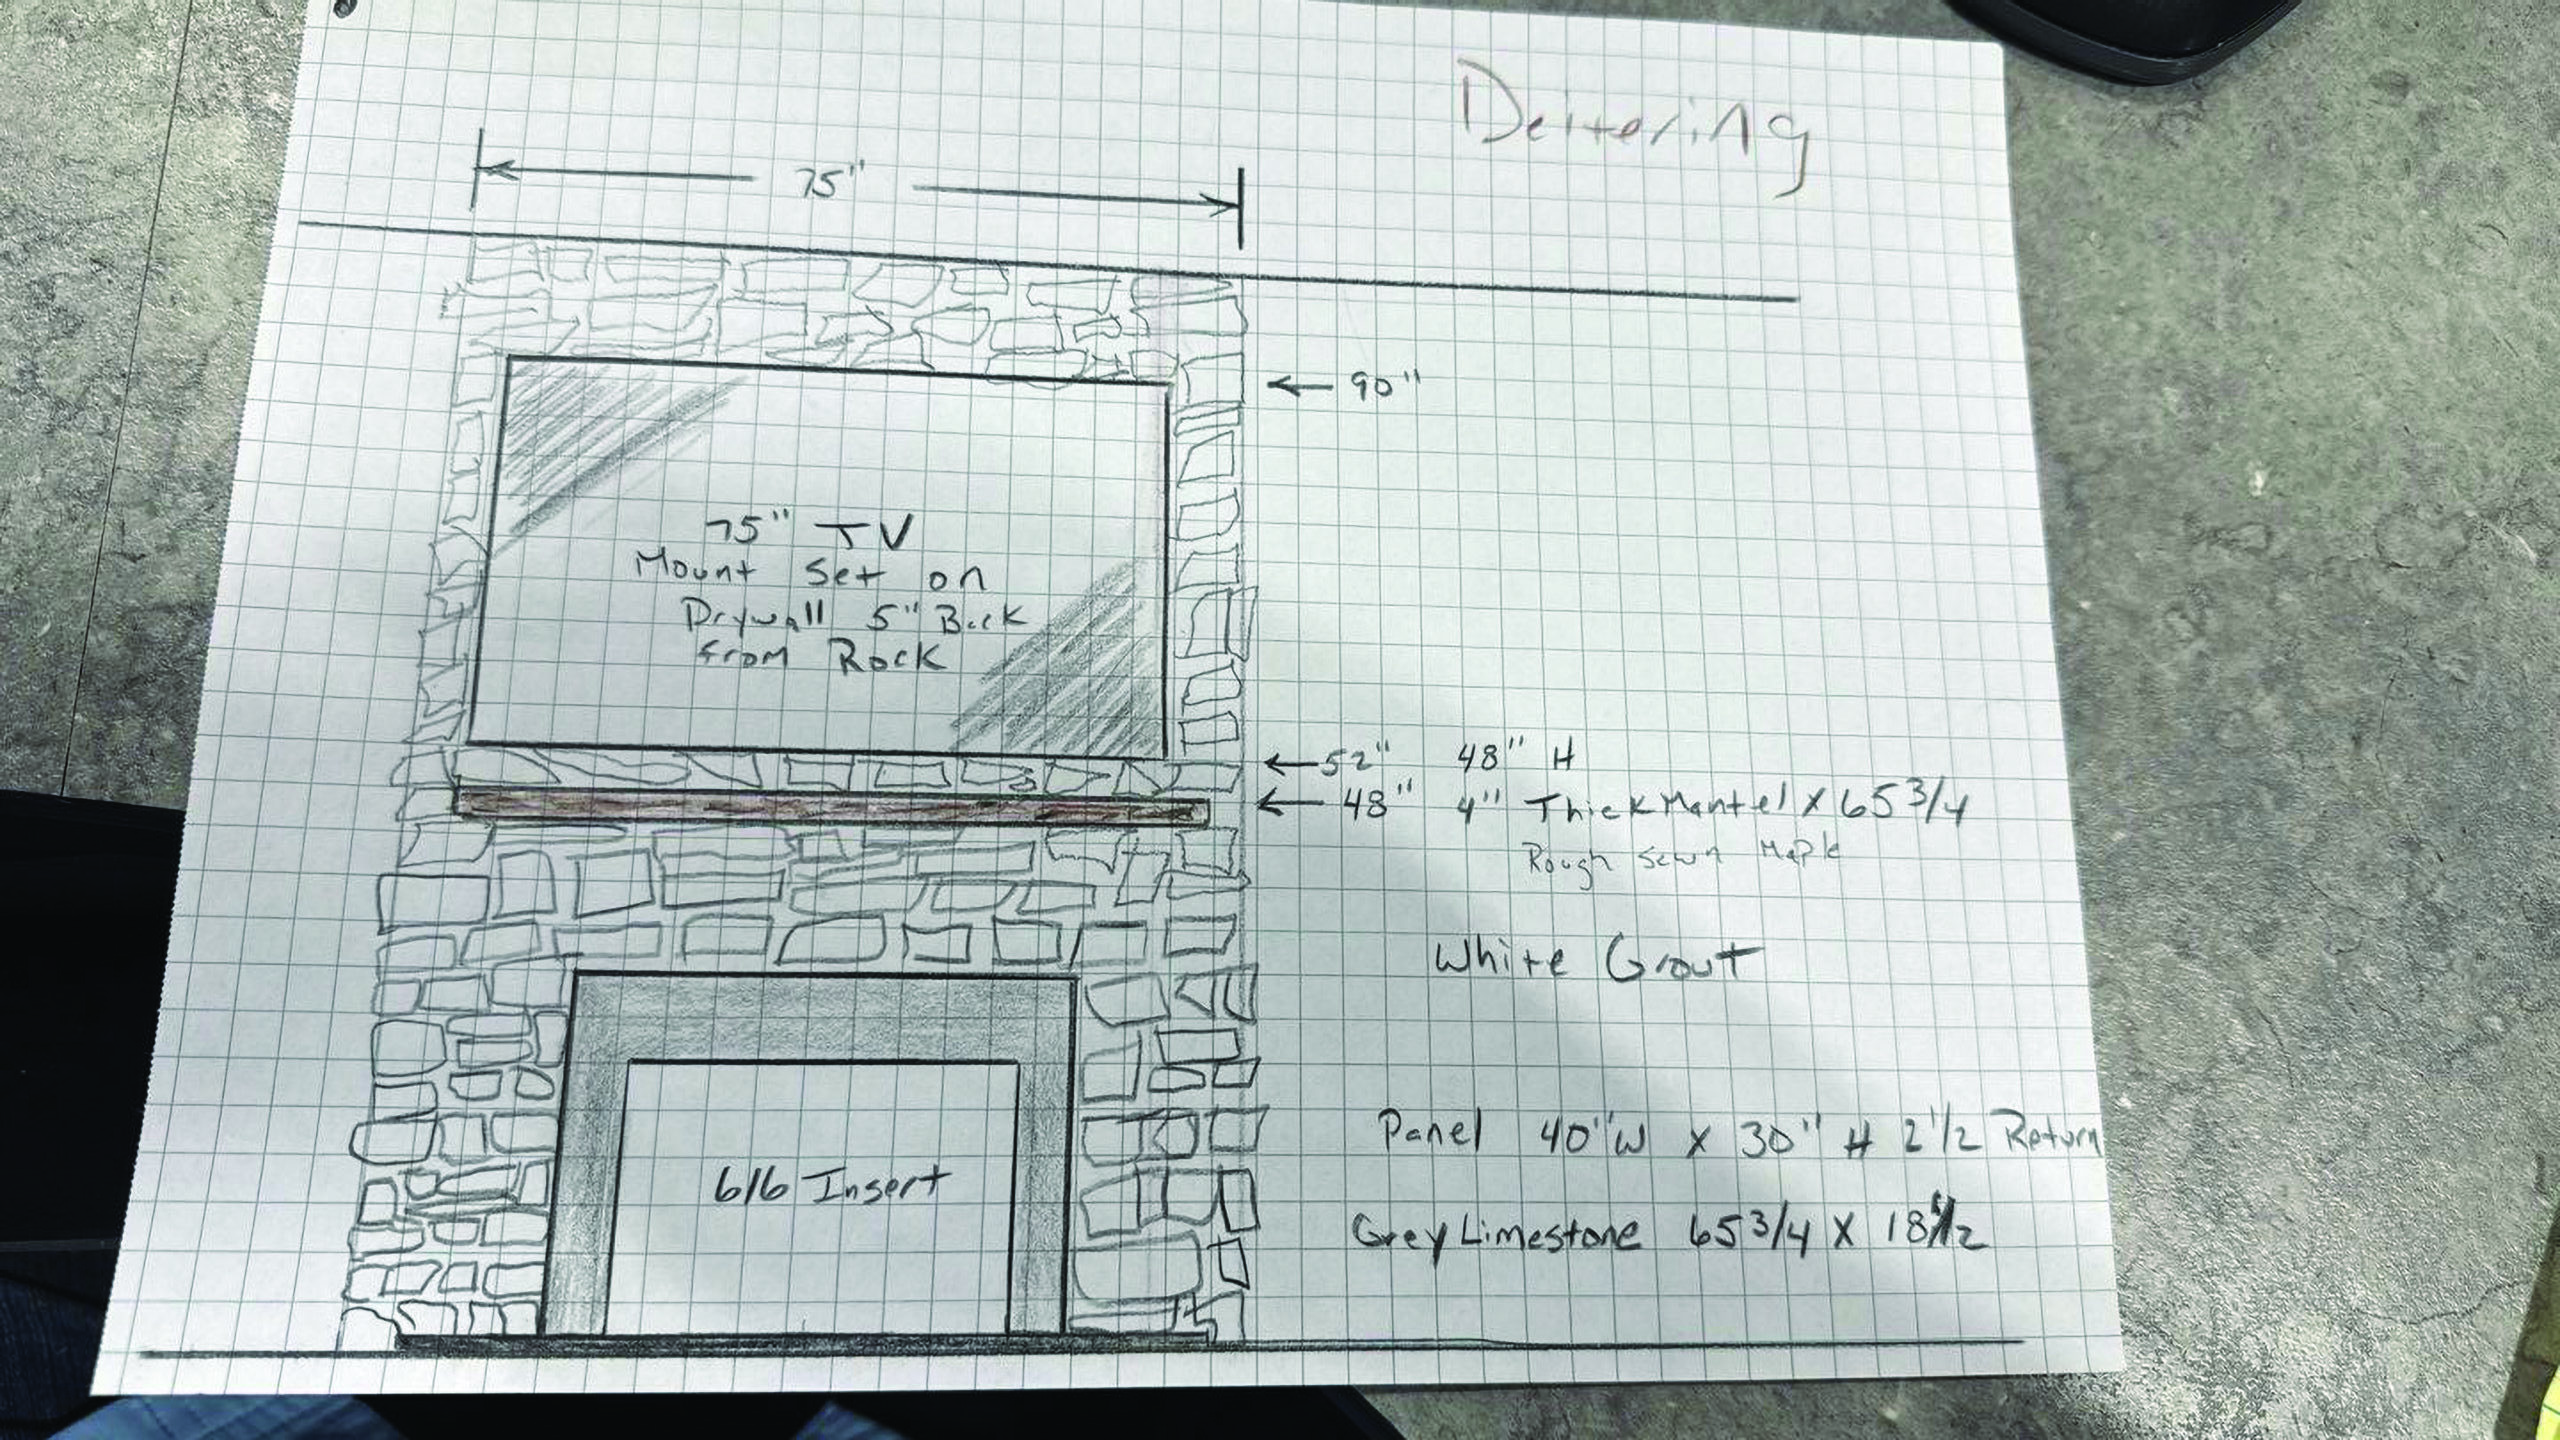 Deitering
75"
90"
75" TV
Mount Set on
Drywall 5" Back
from Rock
52" 48" H
48" 4" Thick Mantel x 65 3/4
Rough Sawn Maple
White Grout
Panel 40" W x 30" H 2 1/2 Return
616 Insert
Grey Limestone 65 3/4 x 18 1/2